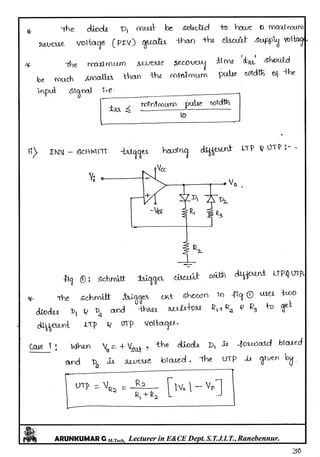 * The diode D₁ must be selected to have a maximum
reverse voltage (PIV) greater than the circuit supply voltage.
* The maximum reverse recovery time 'trr' should
be much smaller than the minimum pulse width of the
input signal i.e.
trr ≤ minimum pulse width / 10
ii) INV - SCHMITT trigger having different LTP & UTP :- .
Vcc
Vi
Vo
-VEE
D₁ D₂
R₁ R₃
R₂
fig ①: Schmitt trigger circuit with different LTP & UTP.
* The schmitt trigger ckt shown in fig ① uses two
diodes D₁ & D₂ and three resistors R₁, R₂ & R₃ to get
different LTP & UTP voltages.
Case 1 : When Vo = + Vsat, the diode D₁ is forward biased
and D₂ is reverse biased. The UTP is given by.
UTP = VR2 = R₂ / R₁ + R₂ [|Vo| - VF]
ARUNKUMAR G M.Tech, Lecturer in E&CE Dept. S.T.J.I.T., Ranebennur.
30